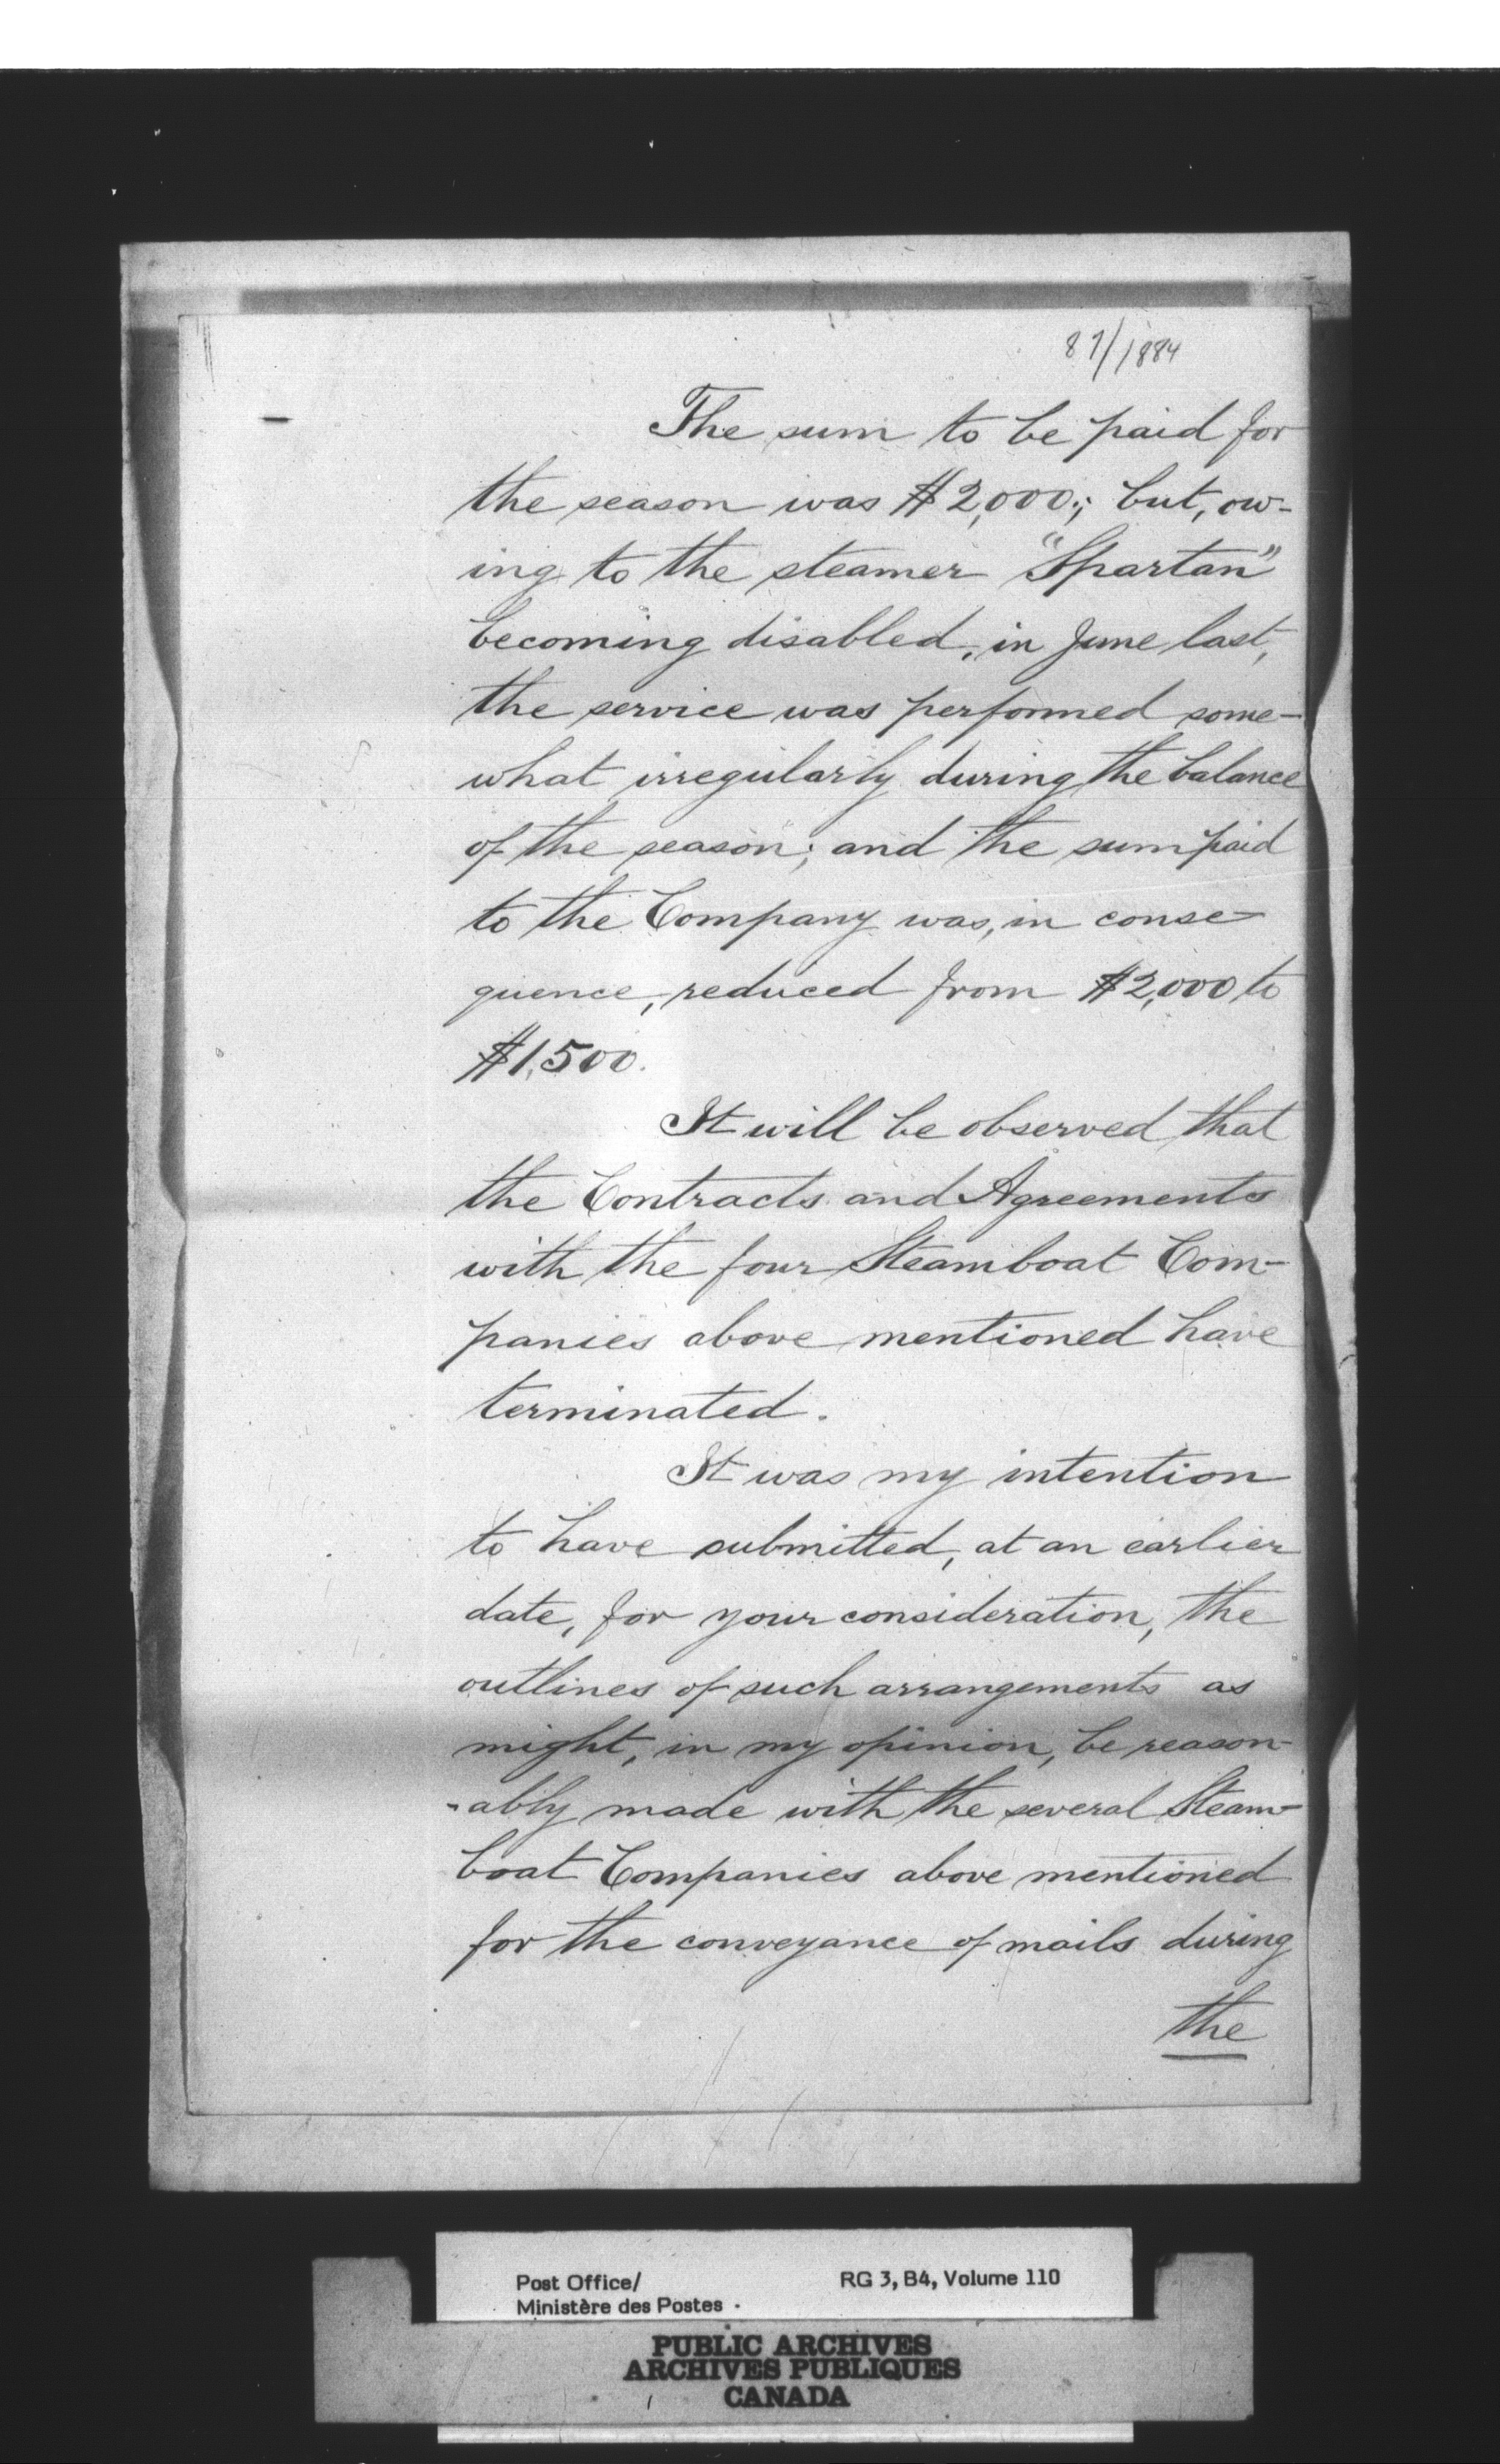 87/1884
The sum to be paid for
the season was $2,000.; but, ow-
ing to the steamer "Spartan"
becoming disabled, in June last,
the service was performed some-
what irregularly during the balance
of the season; and the sum paid
to the Company was, in conse-
quence, reduced from $2,000 to
$1,500.
It will be observed that
the Contracts and Agreements
with the four Steamboat Com-
panies above mentioned have
terminated.
It was my intention
to have submitted, at an earlier
date, for your consideration, the
outlines of such arrangements as
might, in my opinion, be reason-
-ably made with the several Steam-
boat Companies above mentioned
for the conveyance of mails during
the
Post Office/
Ministère des Postes
RG 3, B4, Volume 110
PUBLIC ARCHIVES
ARCHIVES PUBLIQUES
CANADA